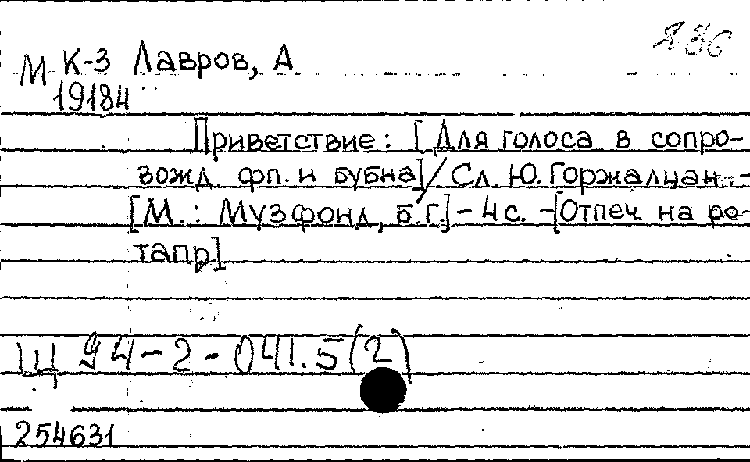 836
М К-3 Лавров, А
19184
Приветствие: [Для голоса в сопро-
вожд. фп. и бубна] / Сл. Ю. Горжалцан. -
[М.: Музфонд, б.г.] - 4 с. - [Отпеч. на ро-
тапр]
Щ 94-2-041.5(2)
254631